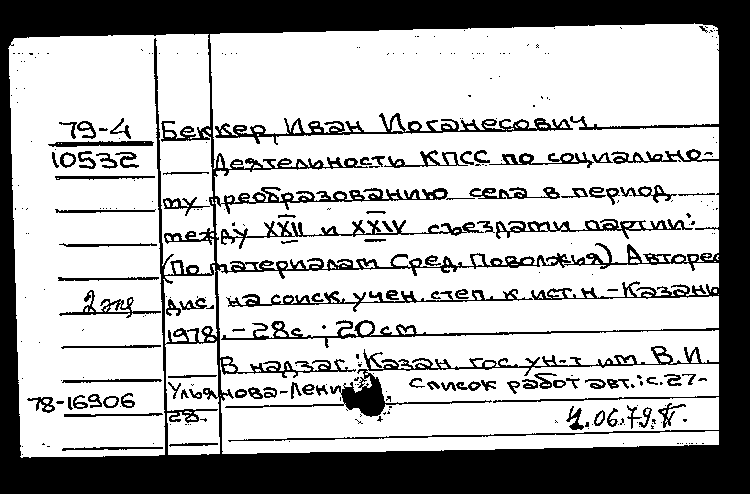 79-4 Беккер, Иван Иоганесович.
10532 Деятельность КПСС по социально-
му преобразованию села в период
между XXII и XXIV съездами партии:
(По материалам Сред. Поволжья). Авторе
2 экз дис. на соиск. учен. степ. к. ист. н. - Казань
1978. - 28с. ; 20см.
В надзаг.: Казан. гос. ун-т им. В.И.
Улья нова-Лени Список работ авт.: с. 27-
78-16906 28.
4.06.79.